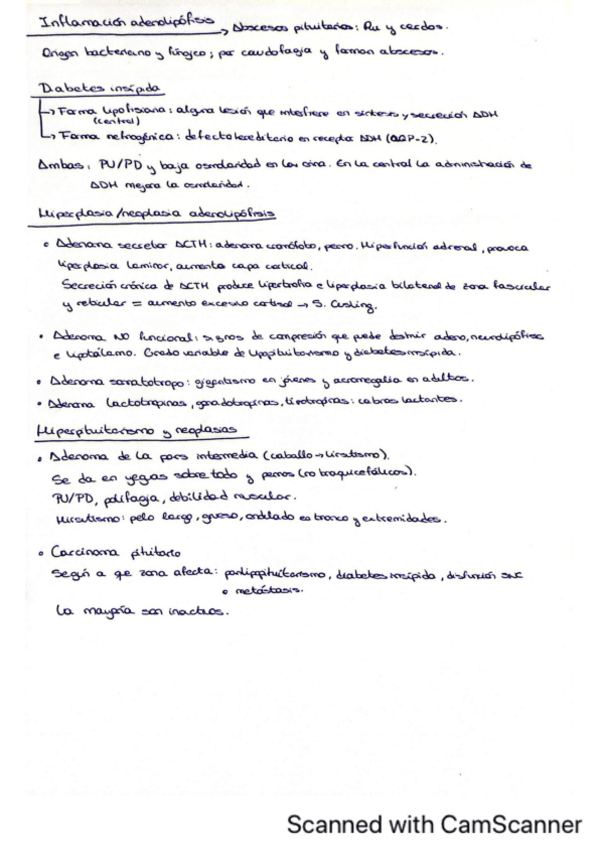 Inflamación adenohipófisis → Abscesos pituitarios: Ru y cerdos.
Origen bacteriano y fúngico; por caudofagia y forman abscesos.
Diabetes insípida
→ Forma hipofisiana: alguna lesión que interfiere en síntesis y secreción ADH
(central)
→ Forma nefrogénica: defecto hereditario en receptor ADH (AQP-2).
Ambas: PU/PD y baja osmolaridad en la orina. En la central la administración de
ADH mejora la osmolaridad.
Hiperplasia/neoplasia adenohipófisis
• Adenoma secretor ACTH: adenoma cromófobo, perro. Hiperfunción adrenal, provoca
hiperplasia laminar, aumenta capa cortical.
Secreción crónica de ACTH produce hipertrofia e hiperplasia bilateral de zona fascicular
y reticular = aumento excesivo cortisol → S. Cushing.
• Adenoma NO funcional: signos de compresión que puede destruir adeno, neurohipófisis
e hipotálamo. Grado variable de hipopituitarismo y diabetes insípida.
• Adenoma somatotropo: gigantismo en jóvenes y acromegalia en adultos.
• Adenoma lactotropinas, gonadotropinas, tirotropinas: cabras lactantes.
Hiperpituitarismo y neoplasias
• Adenoma de la pars intermedia (caballo → hirsutismo).
Se da en yeguas sobre todo y perros (no braquicefálicos).
PU/PD, polifagia, debilidad muscular.
Hirsutismo: pelo largo, grueso, ondulado en tronco y extremidades.
• Carcinoma pituitario
Según a que zona afecta: panhipopituitarismo, diabetes insípida, disfunción SNC
o metástasis.
La mayoría son inactivos.
Scanned with CamScanner